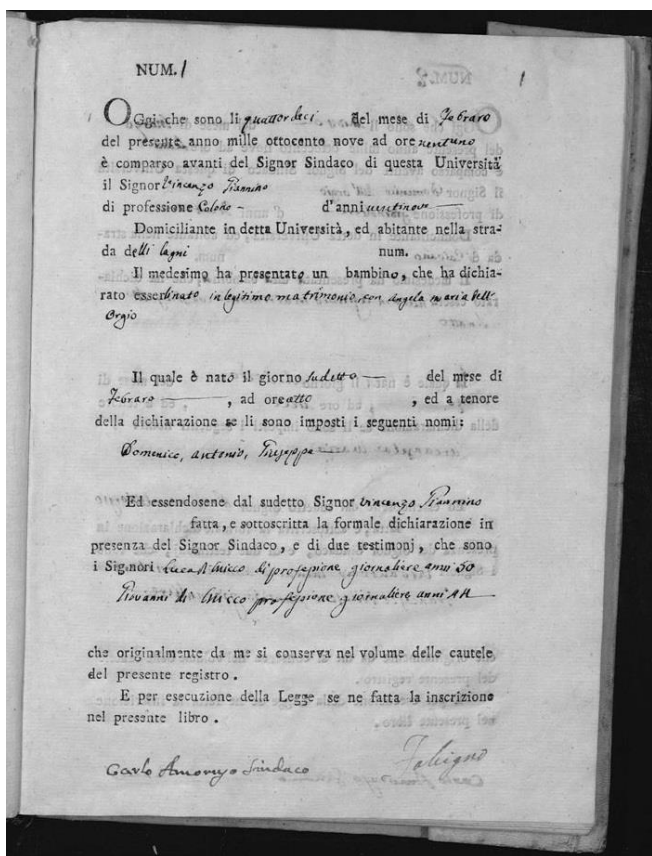 NUM. 1
1
OGgi che sono li quattordeci del mese di Febraro
del presente anno mille ottocento nove ad ore ventuno
è comparso avanti del Signor Sindaco di questa Università
il Signor Vincenzo Giannino
di professione Colono - d'anni ventinove
Domiciliante in detta Università, ed abitante nella stra-
da delli Lagni num.
Il medesimo ha presentato un bambino, che ha dichia-
rato esserli nato in legitimo matrimonio con Angela Maria dell'
Orgio
Il quale è nato il giorno sudetto del mese di
Febraro , ad ore otto , ed a tenore
della dichiarazione se li sono imposti i seguenti nomi:
Domenico, Antonio, Giuseppe
Ed essendosene dal sudetto Signor Vincenzo Giannino
fatta, e sottoscritta la formale dichiarazione in
presenza del Signor Sindaco, e di due testimonj, che sono
i Signori Luca di professione giornaliere anni 50
Giovanni di professione giornaliere anni
che originalmente da me si conserva nel volume delle cautele
del presente registro.
E per esecuzione della Legge se ne fatta la inscrizione
nel presente libro.
Carlo Amoruso Sindaco